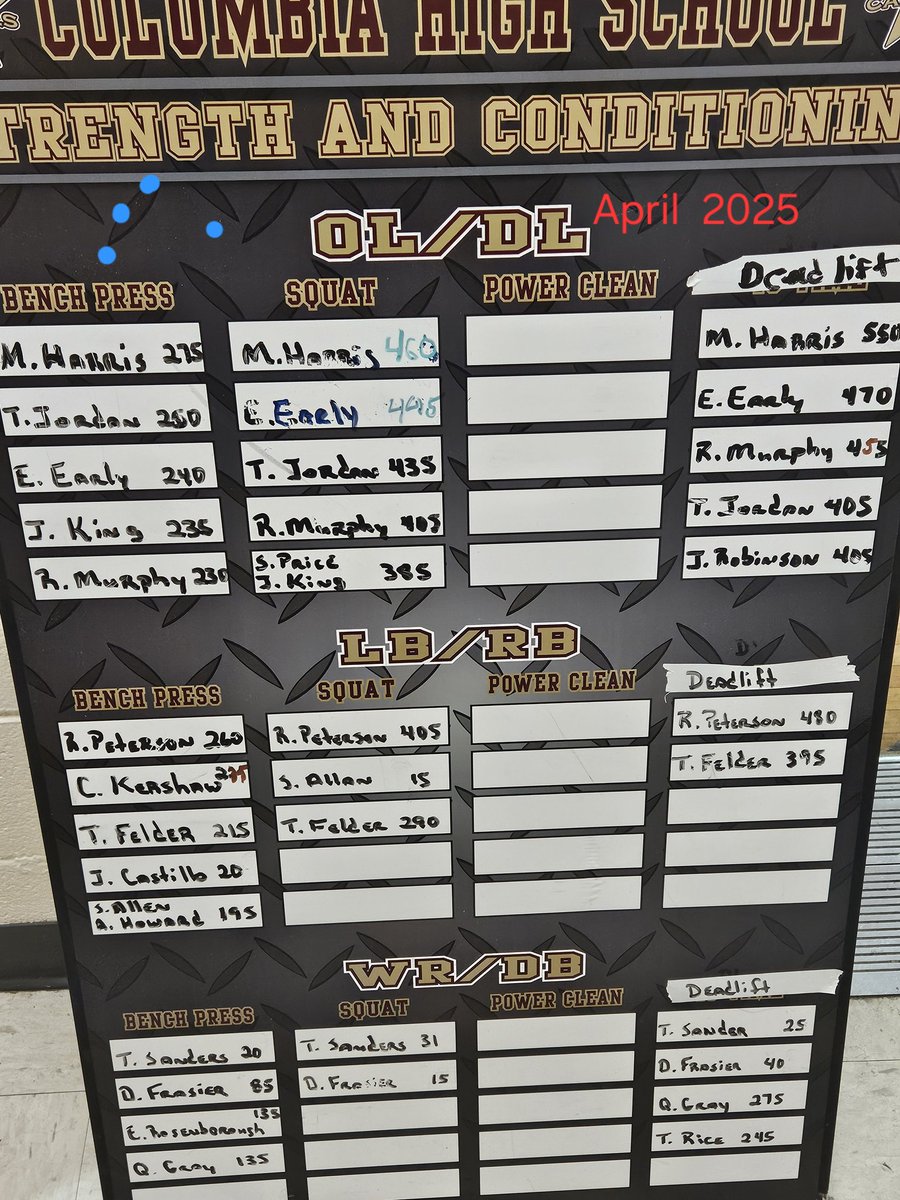 COLUMBIA HIGH SCHOOL
STRENGTH AND CONDITIONIN
OL/DL
April 2025
BENCH PRESS
M. HARRIS 275
T. Jordan 250
E. Early 240
J. King 235
R. Murphy 230
SQUAT
M. Harris 460
E. Early 445
T. Jordan 435
R. Murphy 405
S. Price
J. King 385
POWER CLEAN
Deadlift
M. HARRIS 550
E. Early 470
R. Murphy 455
T. Jordan 405
J. Robinson 405
LB/RB
BENCH PRESS
R. Peterson 260
C. Kershaw
T. Felder 215
J. Castillo 20
S. Allen
A. Howard 195
SQUAT
R. Peterson 405
S. Allan 15
T. Felder 290
POWER CLEAN
Deadlift
R. Peterson 480
T. Felder 395
WR/DB
BENCH PRESS
T. Sanders 20
D. Frasier 85
E. Rosenborough 135
Q. Gray 135
SQUAT
T. Sanders 31
D. Frasier 15
POWER CLEAN
Deadlift
T. Sander 25
D. Frasier 40
Q. Gray 275
T. Rice 245